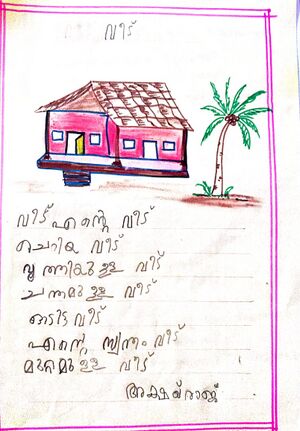 വീട്
വീട് എന്റെ വീട്
ചെറിയ വീട്
വൃത്തിയുള്ള വീട്
ചന്തമുള്ള വീട്
ഓടിട്ട വീട്
എന്റെ സ്വന്തം വീട്
മുറ്റമുള്ള വീട്
അക്ഷയ് രാജ്